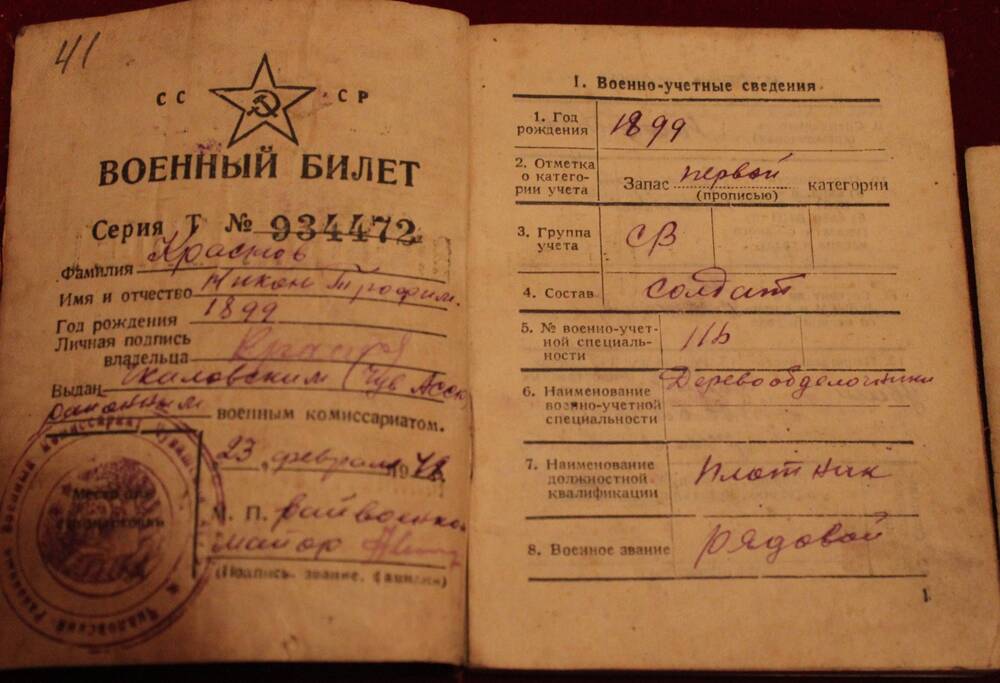 41
СС СР
ВОЕННЫЙ БИЛЕТ
Серия Т № 934472
Фамилия Краснов
Имя и отчество Никон Трофим.
Год рождения 1899
Личная подпись
владельца
Выдан Чкаловским (Чув Асср
районным военным комиссариатом.
23 февраля 1948
М. П. Райвоенком
майор
(Подпись, звание, фамилия)
I. Военно-учетные сведения
1. Год
рождения 1899
2. Отметка
о катего-
рии учета Запас первой категории
(прописью)
3. Группа
учета СВ
4. Состав солдат
5. № военно-учет-
ной специаль-
ности
6. Наименование
военно-учетной
специальности Деревообделочники
7. Наименование
должностной
квалификации плотник
8. Военное звание рядовой
1